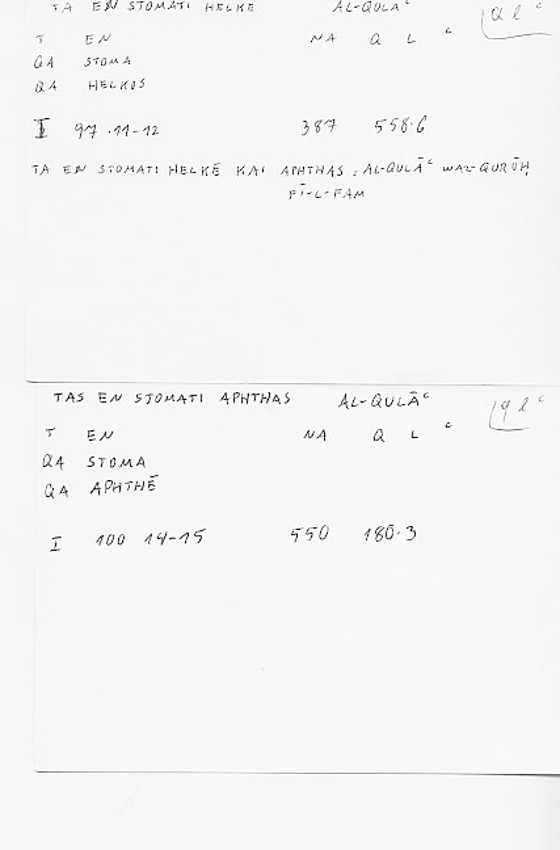 TA EN STOMATI HELKE AL-QULĀᶜ
T EN NA Q L ᶜ Q l ᶜ
QA STOMA
QA HELKOS
I 97 .11-12 387 558.6
TA EN STOMATI HELKĒ KAI APHTHAS : AL-QULĀᶜ WAL-QURŪḤ
FĪ-L-FAM
TAS EN STOMATI APHTHAS AL-QULĀᶜ q l ᶜ
T EN NA Q L ᶜ
QA STOMA
QA APHTHĒ
I 100 14-15 550 180.3